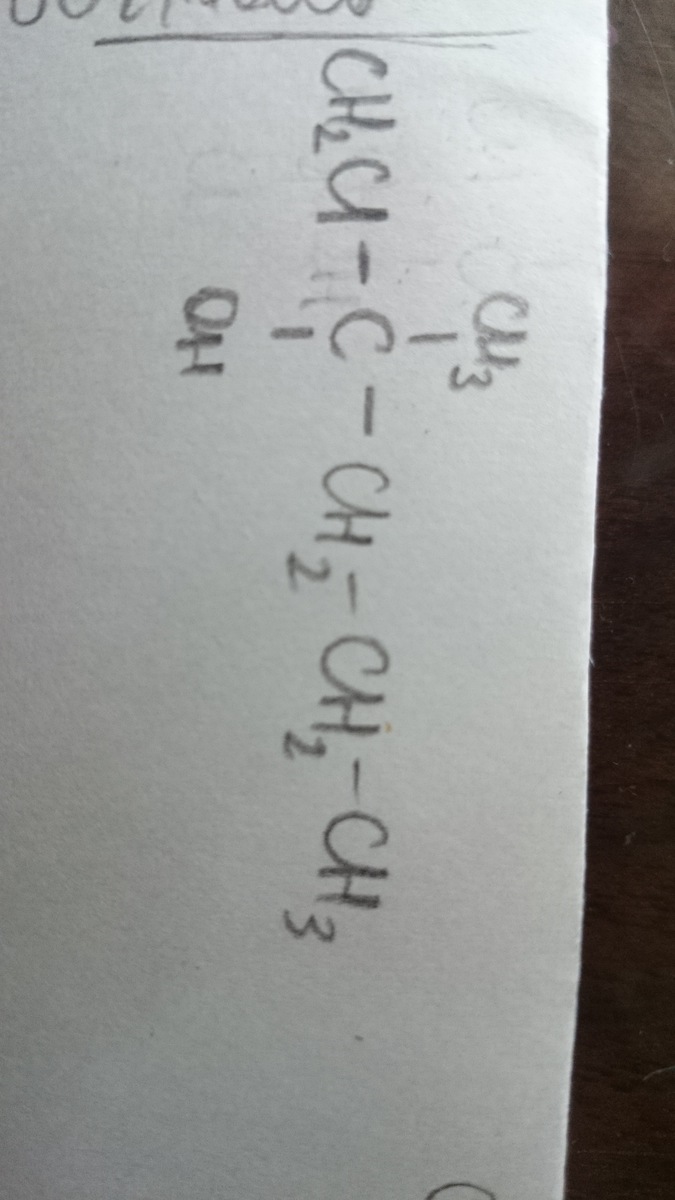 CH3
CH2Cl - C - CH2 - CH2 - CH3
OH